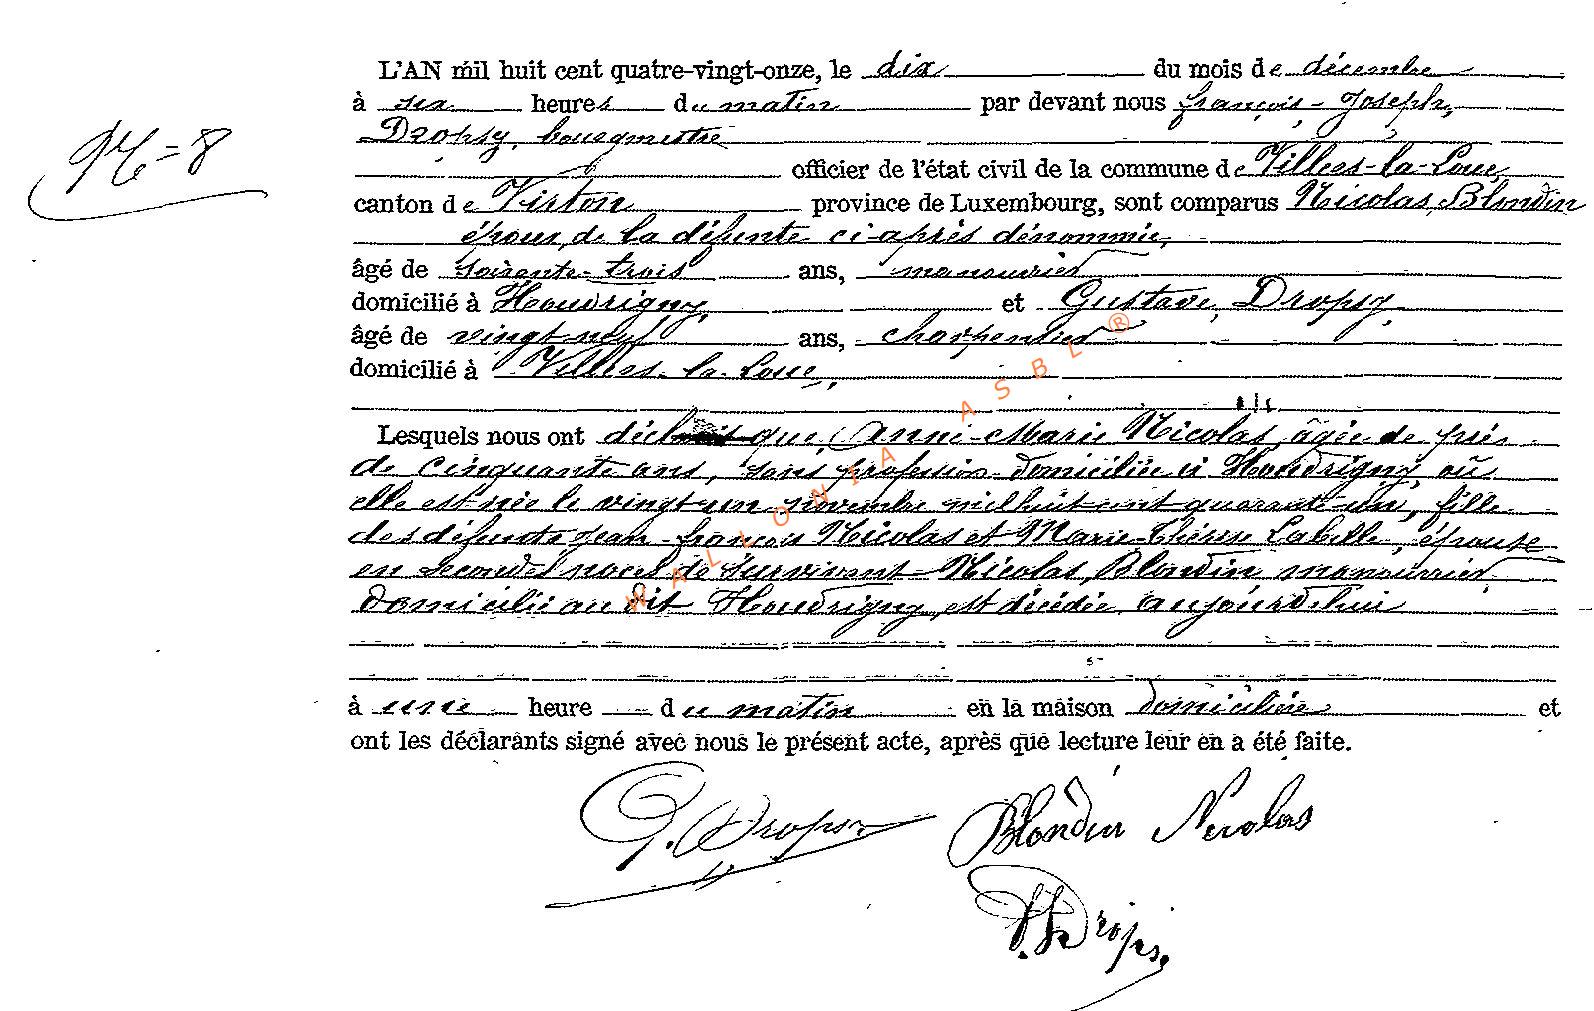 L'AN mil huit cent quatre-vingt-onze, le dix du mois de décembre
à six heures du matin par devant nous françois-Joseph,
Dropsy, bourgmestre
N=8
officier de l'état civil de la commune de Villers-la-Loue,
canton de Virton province de Luxembourg, sont comparus Nicolas, Blondin
époux, de la défunte ci-après dénommée,
âgé de soixante-trois ans, manouvrier
domicilié à Houdrigny, et Gustave, Dropsy,
âgé de vingt-neuf ans, charpentier
domicilié à Villers-la-Loue,
Lesquels nous ont que, Anne-Marie Nicolas, âgée de près
de cinquante ans, sans profession domiciliée à Houdrigny, où
elle est née le vingt-un novembre mil huit cent quarante-un, fille
des défunts Jean-françois Nicolas et Marie-Thérèse Labelle, épouse
en secondes noces de survivant Nicolas, Blondin manouvrier
domicilié au dit Houdrigny, est décédée aujourd'hui
à une heure du matin en la maison domiciliée et
ont les déclarants signé avec nous le présent acte, après que lecture leur en a été faite.
G. Dropsy Blondin Nicolas
Dropsy
WALLONIA ASBL ®